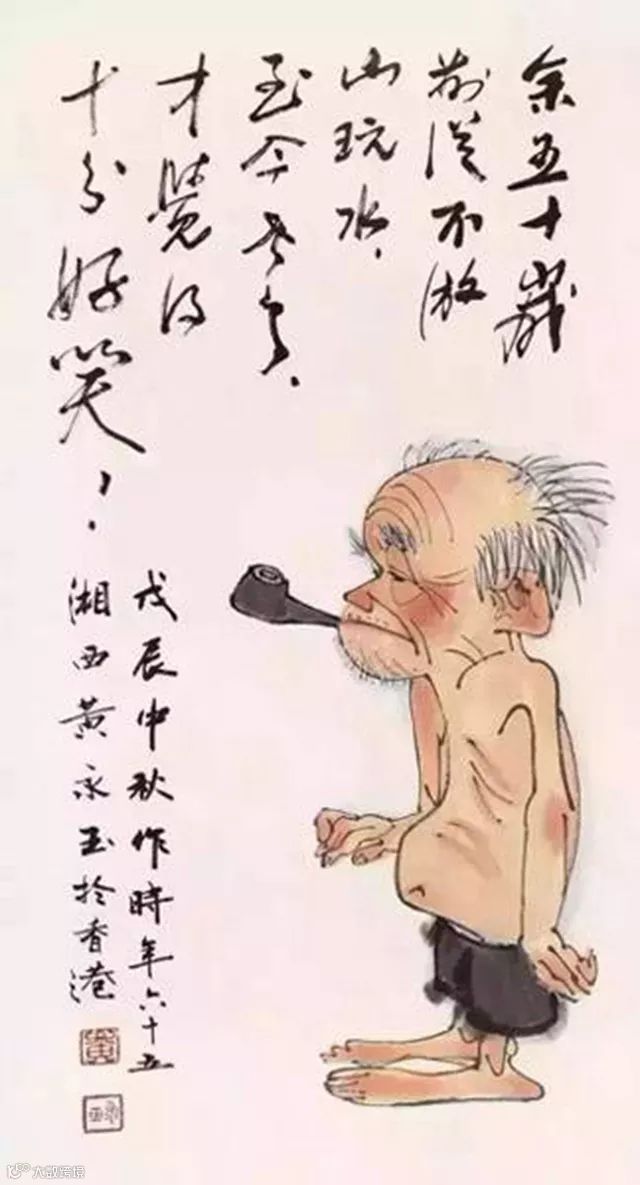 余五十歲
前從不游
山玩水，
至今老矣，
才覺得
十分好笑！
戊辰中秋作時年六十五
湘西黃永玉於香港
黃
大数跨境